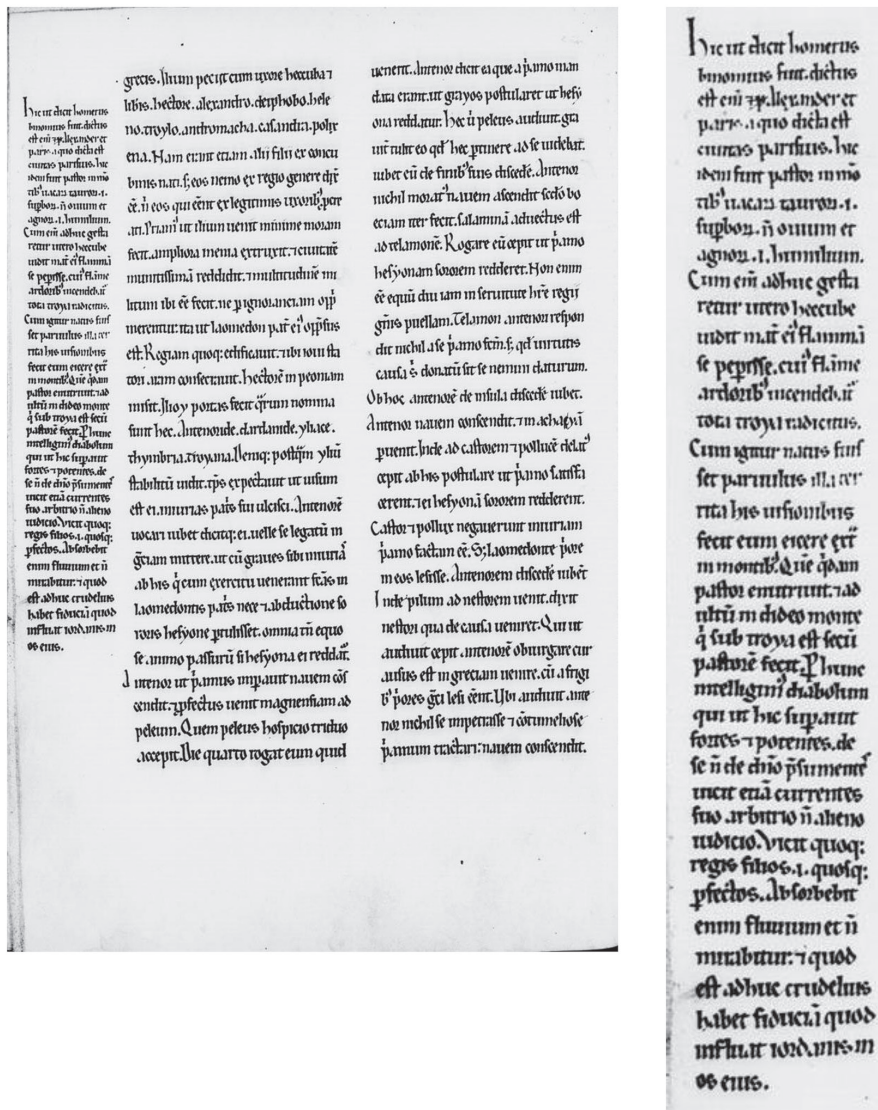 hic ut dicit homerus
binomius fuit. dictus
est eni᷑ ⁊ alexander et
paris. a quo dicta est
ciuitas parisius. hic
idem fuit pastor in mo
tib᷒ uacas tauroꝝ .i.
supboꝝ. n̄ ouium et
agnoꝝ .i. humilium.
Cum eni᷑ adhuc gesta
retur utero heecube
uidit mat᷑ ei᷒ flammā
se pepisse. cui᷒ flāme
ardorib᷒ incendeb.t᷑
tota troya radicitus.
Cum igitur natus fuis
set paruulus
rita his uisionibus
fecit eum eicere ext᷑
in montib᷒. Que q̄dam
pastor enutriuit. ⁊ ad
ultū in dideo monte
q̄ sub troya est secū
pastorē fecit. P hunc
intelligim᷒ diabolum
qui ut hic supauit
fortes ⁊ potentes. de
se n̄ de dn̄o p̄sumentē
uicit etiā currentes
suo arbitrio n̄ alieno
iudicio. Vicit quoq:
regis filios .i. quosq:
pfectos. Absorbebit
enim fluuium et n̄
mirabitur: ⁊ quod
est adhuc crudelius
habet fiduciā quod
influat iordanis in
os eius.
grecis. Ilium peciit cum uxore heccuba ⁊
libis. hectore. alexandro. deiphobo. hele
no. troylo. andromacha. casandra. polix
ena. Nam erant etiam alii filii ex concu
binis nati. s; eos nemo ex regio genere dix̄
eē. n̄ eos qui eēnt ex legitimis uxorib᷒ pcre
ati. Priam᷒ ut ilium uenit minime moram
fecit. ampliora menia extruxit. ⁊ ciuitatē
munitissimā reddidit. ⁊ multitudinē mi
litum ibi eē fecit. ne p ignoranciam opp
merentur. ita ut laomedon pat᷑ ei᷒ opp̄sus
est. Regiam quoq: edificauit. ⁊ ibi ioui sta
tori aram consecrauit. hectorē in peoniam
misit. Ilioy portas fecit q̄rum nomina
sunt hec. Antenoride. dardanide. yliace.
thymbria. troyana. Deniq: postq̄m yliū
stabilitū uidit. tp̄s expectauit ut uisum
est ei. iniurias pat̄s sui ulcisci. Antenorē
uocari iubet dicitq: ei. uelle se legatū in
gciam mittere. ut cū graues sibi iniuria
ab his q̄ cum exercitu uenerant fcās in
laomedontis pat̄s nece ⁊ abductione so
roris hesyone ptulisset. omnia tn̄ equo
se animo passurū si hesyona ei reddat᷑.
Antenor ut p̄amus impauit nauem cōs
cendit. ⁊ pfectus uenit magnesiam ad
peleum. Quem peleus hospicio triduo
accepit. Die quarto rogat eum quid
uenerit. Antenor dicit ea que a p̄amo man
data erant. ut grayos postularet ut hesy
ona reddatur. Hec u᷑ peleus audiuit. gra
uit᷑ tulit eo qd᷒ hec ptinere ad se uidebat.
iubet eū de finib᷒ suis discedē. Antenor
nichil morat᷒ nauem ascendit. scdō bo
eciam iter fecit. salaminā aduectus est
ad telamonē. Rogare eū cepit ut p̄amo
hesyonam sororem redderet. Non enim
eē equū diu iam in seruitute hr̄e regii
gn̄is puellam. Telamon antenori respon
dit nichil a se p̄amo fcm̄. s; qd᷒ uirtutis
causa s. donatū sit se nemini daturum.
Ob hoc antenorē de insula discedē iubet.
Antenor nauem conscendit. ⁊ in achayā
puenit. Inde ad castorem ⁊ pollucē delat᷒
cepit ab his postulare ut p̄amo satisfa
cerent. ⁊ ei hesyonā sororem redderent.
Castor ⁊ pollux negauerunt iniuriam
p̄amo factam eē. S; laomedonte pore
in eos lesisse. Antenorem discedē iubēt
Inde pilum ad nestorem uenit. dixit
nestori qua de causa ueniret. Qui ut
audiuit cepit antenorē obiurgare cur
ausus est in greciam uenire. cū a frigi
b᷒ pores gci lesi eēnt. Ubi audiuit ante
nor nichil se impetrasse ⁊ cōtumeliose
p̄amum tractari: nauem conscendit.
hic ut dicit homerus
binomius fuit. dictus
est eni᷑ ⁊ alexander et
paris. a quo dicta est
ciuitas parisius. hic
idem fuit pastor in mo
tib᷒ uacas tauroꝝ .i.
supboꝝ. n̄ ouium et
agnoꝝ .i. humilium.
Cum eni᷑ adhuc gesta
retur utero heecube
uidit mat᷑ ei᷒ flammā
se pepisse. cui᷒ flāme
ardorib᷒ incendeb.t᷑
tota troya radicitus.
Cum igitur natus fuis
set paruulus
rita his uisionibus
fecit eum eicere ext᷑
in montib᷒. Que q̄dam
pastor enutriuit. ⁊ ad
ultū in dideo monte
q̄ sub troya est secū
pastorē fecit. P hunc
intelligim᷒ diabolum
qui ut hic supauit
fortes ⁊ potentes. de
se n̄ de dn̄o p̄sumentē
uicit etiā currentes
suo arbitrio n̄ alieno
iudicio. Vicit quoq:
regis filios .i. quosq:
pfectos. Absorbebit
enim fluuium et n̄
mirabitur: ⁊ quod
est adhuc crudelius
habet fiduciā quod
influat iordanis in
os eius.